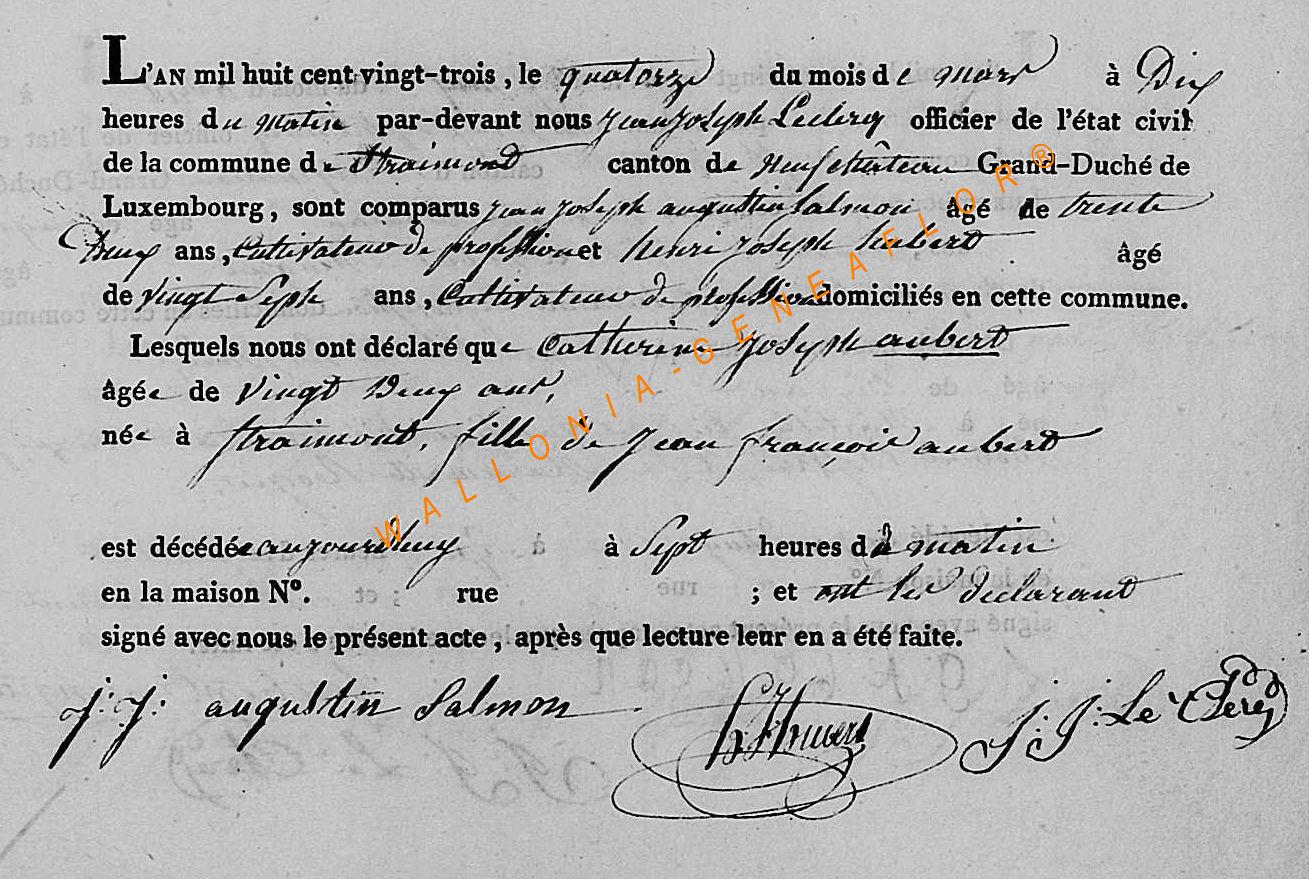 L'AN mil huit cent vingt-trois, le quatorze du mois de mars à Dix
heures du matin par-devant nous jean joseph Leclercq officier de l'état civil
de la commune de Straimont canton de neufchâteau Grand-Duché de
Luxembourg, sont comparus jean joseph augustin Salmon âgé de trente
Deux ans, Cultivateur de profession et henri joseph hubert âgé
de vingt Sept ans, Cultivateur de profession domiciliés en cette commune.
Lesquels nous ont déclaré que Catherine joseph aubert
âgée de vingt Deux ans,
née à straimont, fille de jean françois aubert
est décédée aujourdhuy à Sept heures du matin
en la maison N°. rue ; et ont les declarant
signé avec nous le présent acte, après que lecture leur en a été faite.
j: j: augustin Salmon h j hubert J: J: Le Clercq
WALLONIA-GENEAFLOR®